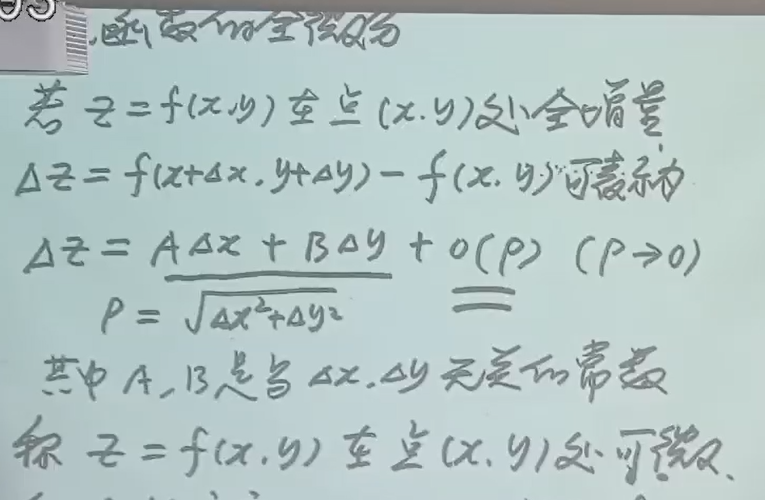 函数的全微分
若 z = f(x,y) 在点 (x,y) 处全增量
Δz = f(x+Δx, y+Δy) - f(x,y) 可表示为
Δz = AΔx + BΔy + o(ρ) (ρ→0)
ρ = √Δx²+Δy²
其中 A, B 是与 Δx, Δy 无关的常数
称 z = f(x,y) 在点 (x,y) 处可微.